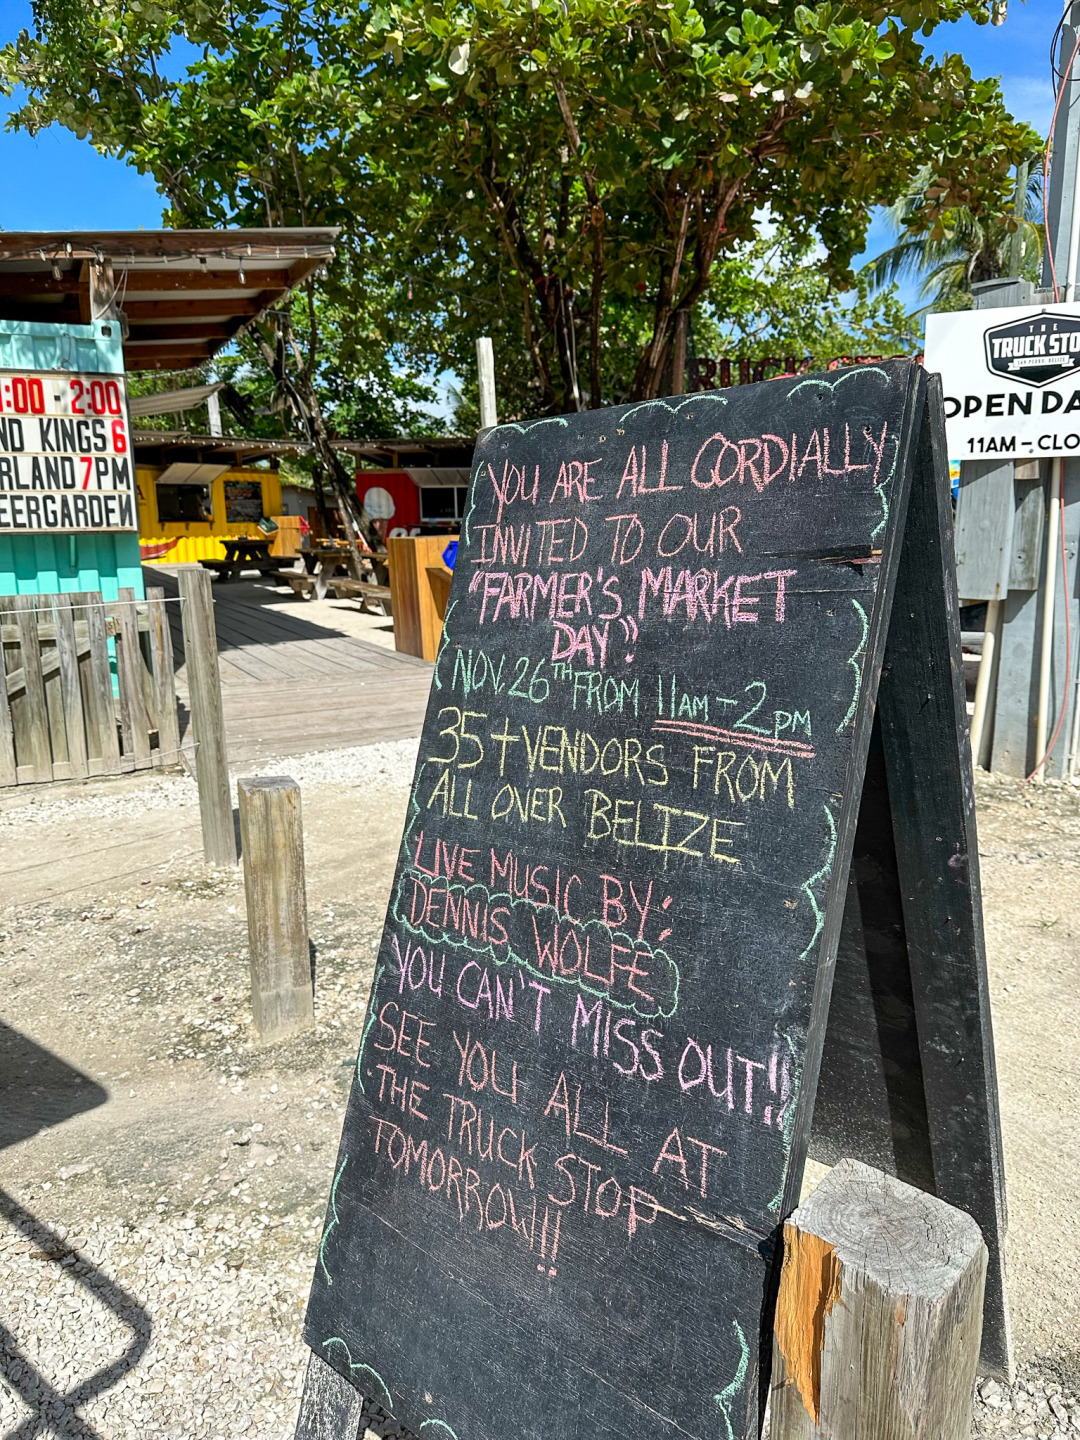 1:00 - 2:00
ND KINGS 6
RLAND 7PM
EERGARDEN
THE
TRUCK STO
SAN PEDRO, BELIZE
OPEN DA
11AM - CLO
YOU ARE ALL CORDIALLY
INVITED TO OUR
"FARMER'S MARKET
DAY"!
NOV. 26TH FROM 11AM - 2PM
35+ VENDORS FROM
ALL OVER BELIZE
LIVE MUSIC BY:
DENNIS WOLFE
YOU CAN'T MISS OUT!!
SEE YOU ALL AT
THE TRUCK STOP
TOMORROW!!